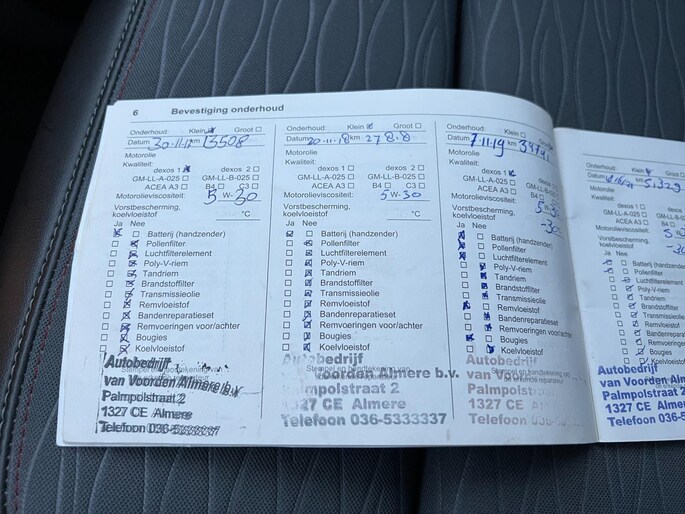 6 Bevestiging onderhoud
Onderhoud: Klein Groot
Datum 30.11.17 km 13508
Motorolie
Kwaliteit:
dexos 1 dexos 2
GM-LL-A-025 GM-LL-B-025
ACEA A3 B4 C3
Motorolieviscositeit: 5 W- 30
Vorstbescherming,
koelvloeistof °C
Ja Nee
Batterij (handzender)
Pollenfilter
Luchtfilterelement
Poly-V-riem
Tandriem
Brandstoffilter
Transmissieolie
Remvloeistof
Bandenreparatieset
Remvoeringen voor/achter
Bougies
Koelvloeistof
Autobedrijf
van Voorden Almere b.v.
Palmpolstraat 2
1327 CE Almere
Telefoon 036-5333337
Onderhoud: Klein Groot
Datum 20.11.18 km
Motorolie
Kwaliteit:
dexos 1 dexos 2
GM-LL-A-025 GM-LL-B-025
ACEA A3 B4 C3
Motorolieviscositeit: 5 W- 30
Vorstbescherming,
koelvloeistof °C
Ja Nee
Batterij (handzender)
Pollenfilter
Luchtfilterelement
Poly-V-riem
Tandriem
Brandstoffilter
Transmissieolie
Remvloeistof
Bandenreparatieset
Remvoeringen voor/achter
Bougies
Koelvloeistof
Autobedrijf
Voorden Almere b.v.
Palmpolstraat 2
1327 CE Almere
Telefoon 036-5333337
Onderhoud: Klein
Datum 7.11.19 km
Motorolie
Kwaliteit:
dexos 1
GM-LL-A-025 GM-LL-B-025
ACEA A3 B4
Motorolieviscositeit:
Vorstbescherming,
koelvloeistof -30
Ja Nee
Batterij (handzender)
Pollenfilter
Luchtfilterelement
Poly-V-riem
Tandriem
Brandstoffilter
Transmissieolie
Remvloeistof
Bandenreparatieset
Remvoeringen voor/achter
Bougies
Koelvloeistof
Autobedrijf
van Voorden
Palmpolstraat
1327 CE
Telefoon 036-5
Onderhoud: Klein
Datum km 51329
Motorolie
Kwaliteit:
dexos 1
GM-LL-A-025
ACEA A3
Motorolieviscositeit:
Vorstbescherming,
koelvloeistof
Ja Nee
Batterij (handzender)
Pollenfilter
Luchtfilterelement
Poly-V-riem
Tandriem
Brandstoffilter
Transmissieolie
Remvloeistof
Bandenreparatieset
Remvoeringen
Bougies
Koelvloeistof
Autobedrijf
van Voorden
Palmpolstraat 2
1327 CE Almere
Telefoon 036-53